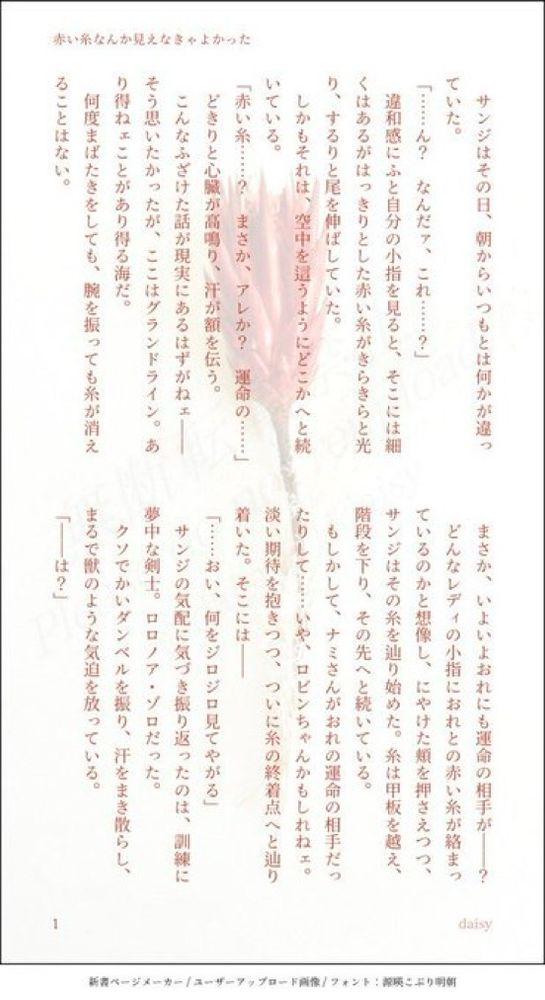 赤い糸なんか見えなきゃよかった
サンジはその日、朝からいつもとは何かが違っ
ていた。
「……ん？　なんだァ、これ……？」
違和感にふと自分の小指を見ると、そこには細
くはあるがはっきりとした赤い糸がきらきらと光
り、するりと尾を伸ばしていた。
しかもそれは、空中を這うようにどこかへと続
いている。
「赤い糸……？　まさか、アレか？　運命の……」
どきりと心臓が高鳴り、汗が額を伝う。
こんなふざけた話が現実にあるはずがねェ――
そう思いたかったが、ここはグランドライン。あ
り得ねェことがあり得る海だ。
何度まばたきをしても、腕を振っても糸が消え
ることはない。
まさか、いよいよおれにも運命の相手が――？
どんなレディの小指におれとの赤い糸が絡まっ
ているのかと想像し、にやけた頬を押さえつつ、
サンジはその糸を辿り始めた。糸は甲板を越え、
階段を下り、その先へと続いている。
もしかして、ナミさんがおれの運命の相手だっ
たりして……いや、ロビンちゃんかもしれねェ。
淡い期待を抱きつつ、ついに糸の終着点へと辿り
着いた。そこには――
「……おい、何をジロジロ見てやがる」
サンジの気配に気づき振り返ったのは、訓練に
夢中な剣士。ロロノア・ゾロだった。
クソでかいダンベルを振り、汗をまき散らし、
まるで獣のような気迫を放っている。
「――は？」
1
daisy
新書ページメーカー / ユーザーアップロード画像 / フォント：源暎こぶり明朝